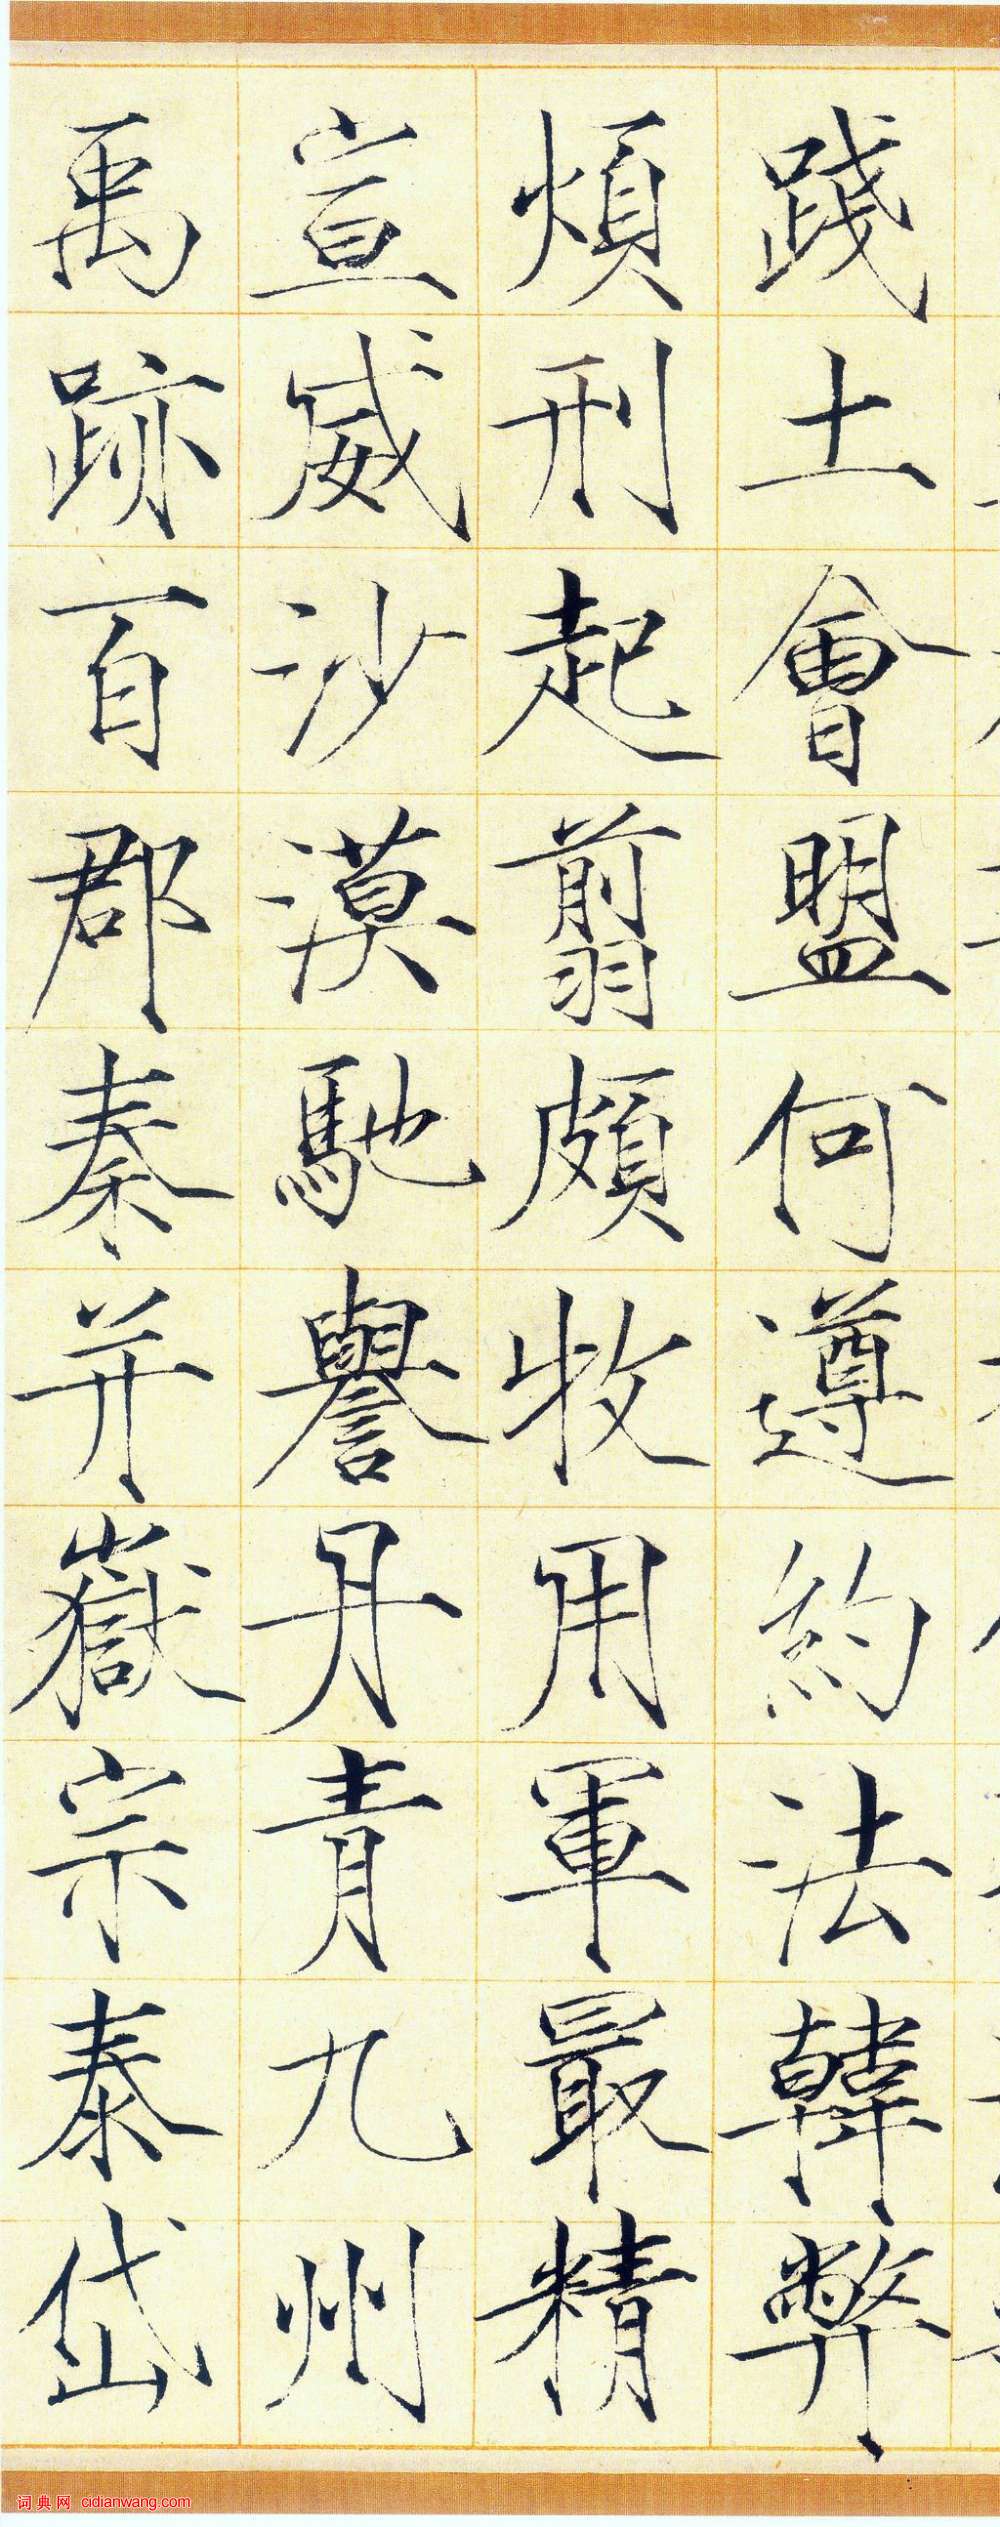 踐土會盟何遵約法韓弊
煩刑起翦頗牧用軍最精
宣威沙漠馳譽丹青九州
禹跡百郡秦并嶽宗泰岱
词典网 cidianwang.com